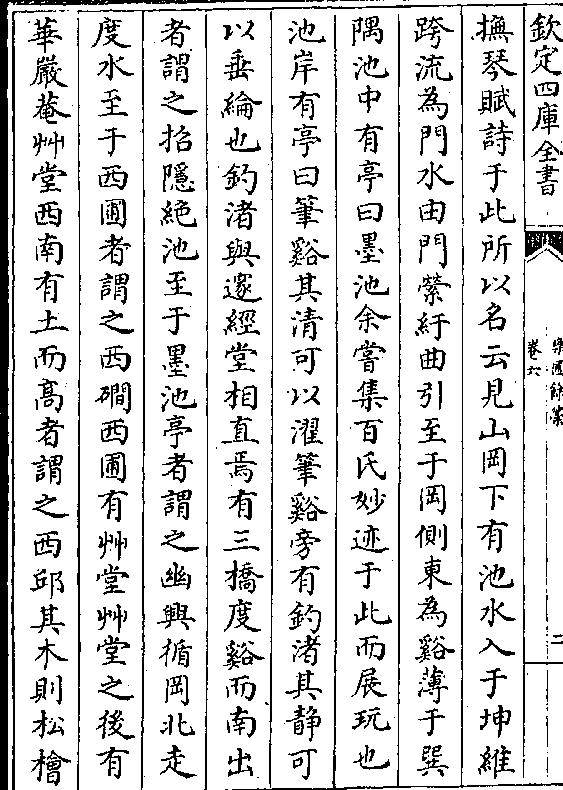 欽定四庫全書
樂圃餘藁
卷六
二
撫琴賦詩于此所以名云見山岡下有池水入于坤維
跨流為門水由門縈紆曲引至于岡側東為谿薄于巽
隅池中有亭曰墨池余嘗集百氏妙迹于此而展玩也
池岸有亭曰筆谿其清可以濯筆谿旁有釣渚其静可
以垂綸也釣渚與邃經堂相直焉有三橋度谿而南出
者謂之招隱絶池至于墨池亭者謂之幽興循岡北走
度水至于西圃者謂之西磵西圃有艸堂艸堂之後有
華嚴菴艸堂西南有土而高者謂之西邱其木則松檜